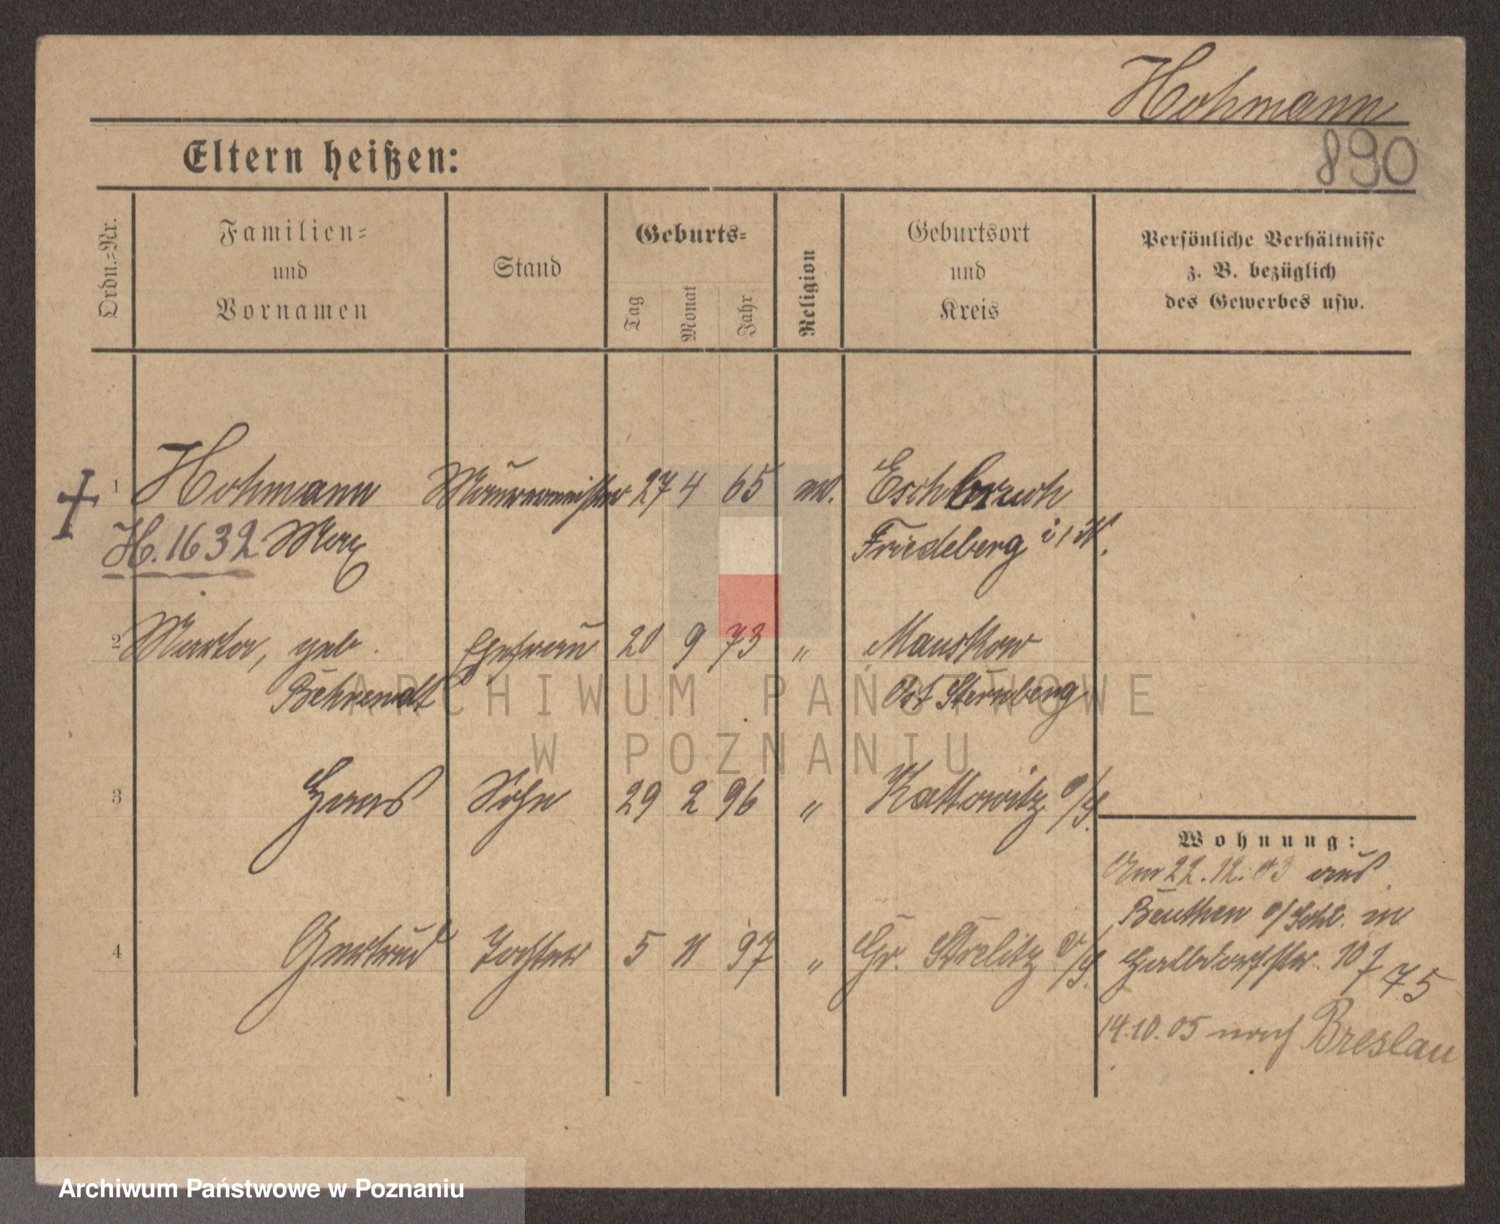 Hohmann
890
Eltern heißen:
Ordn.-Nr.
Familien-
und
Vornamen
Stand
Geburts-
Tag
Monat
Jahr
Religion
Geburtsort
und
Kreis
Persönliche Verhältnisse
z. B. bezüglich
des Gewerbes usw.
1 Hohmann Maurermeister 27 4 65 ev. Eschbruch
H. 1632 Max Friedeberg i/N.
2 Marta, geb. Ehefrau 20 9 73 " Mauskow
Behrendt Ost Sternberg
3 Hans Sohn 29 2 96 " Kattowitz O/S.
4 Gertrud Tochter 5 11 97 " Gr. Strelitz O/S.
Wohnung:
Am 22.12.03 aus
Beuthen O/Schl. in
Halbdorfstr. 10
775
14.10.05 nach Breslau
ARCHIWUM PAŃSTWOWE
W POZNANIU
Archiwum Państwowe w Poznaniu